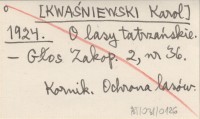 [KWAŚNIEWSKI Karol]
1924. O lasy tatrzańskie.
— Głos Zakop. 2, nr 36.
Kornik. Ochrona lasów.